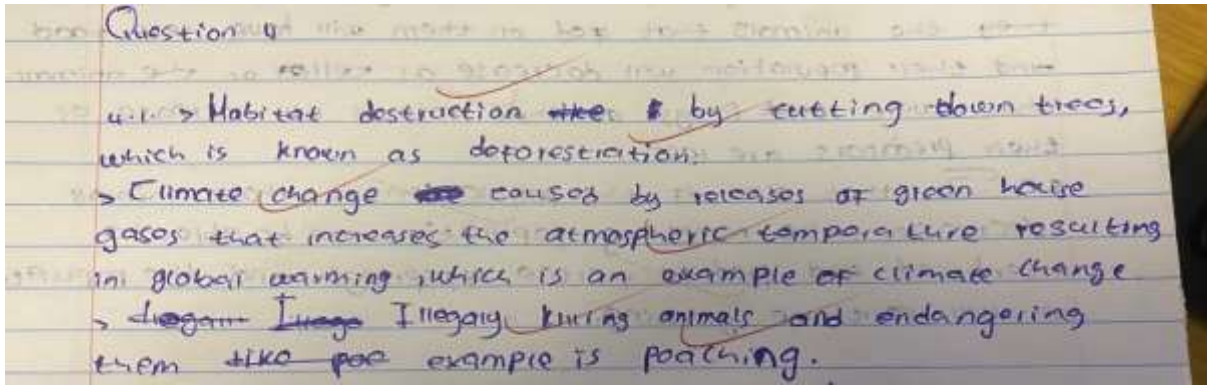 Question 4
4.1. > Habitat destruction like by cutting down trees,
which is known as deforestration.
> Climate change caused by releases of green house
gases that increases the atmospheric temperature resulting
in global warming, which is an example of climate change
> Illegaly killing animals and endangering
them like poe example is poaching.